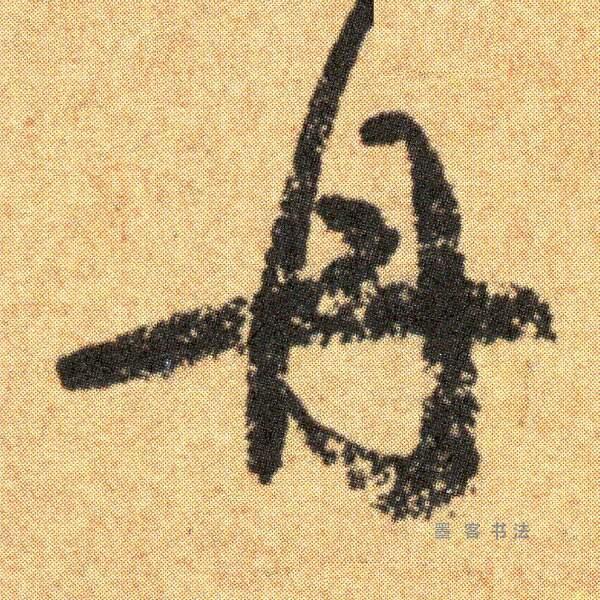 丹
墨客书法